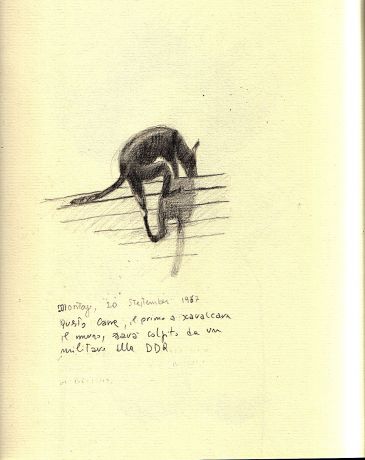 Montag, 20 September 1987
questo cane, il primo a scavalcare
il muro, sarà colpito da un
militare della DDR